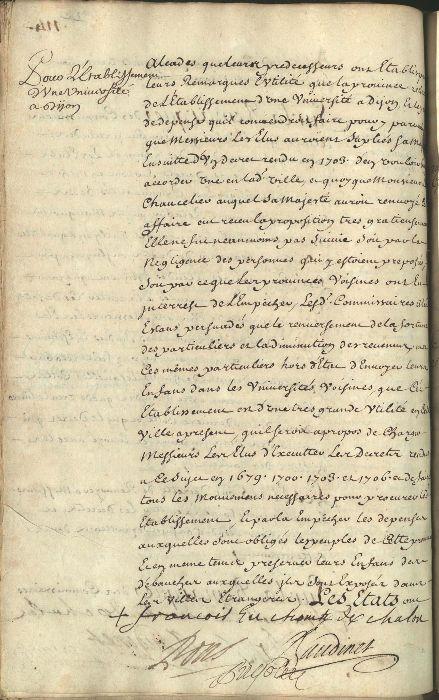 114.
Pour L'Establissement
d'vne Vniversité
a dijon
Alcades que leurs predecesseurs ont Establi
leurs Remarques L'vtilité que la province
de L'Etablissement d'vne Vniversité a Dijon, Et le
de depense quil conviendroit faire pour y
que Messieurs Les Elus auroient Supliés Sa Ma
Ensuitte d'Vn decret rendu en 1703. de vouloir
accorder vne en lad. ville, et quoyque Monsieur
Chancelier auquel Sa Majesté auroit renvoyé L
affaire eut receu la proposition tres gratieusement
Elle ne fut neanmoins pas Suivie Soit par la
Negligence des personnes qui y estoient preposé
Soit parce que Les provinces Voisines ont Eu
interrest de L'Empecher, Lesd. Commissaires
Estans persuadés que le renversement de la fortune
des particuliers et la diminution des revenus
Ces mêmes particuliers hors d'Etat d'Envoyer leurs
Enfans dans les Vniversités Voisines, que Cet
Etablissement est d'vne tres grande Vtilité en
Ville apresent, quil seroit apropos de Charger
Messieurs Les Elus d'Executter Les Decrets rendus
a Ce Sujet en 1679. 1700. 1703. et 1706. et de
tous les Mouvemens necessaires pour procurer
Etablissement, Et par la Empecher les depenses
auxquelles Sont obligés les peuples de Cette province
Et en meme temps preserver leurs Enfans de
debauches auxquelles ils Sont Exposés dans
Les Villes Etrangeres. Les Etats ont
+ francois Ev. de chalon
Rous
Baudinet